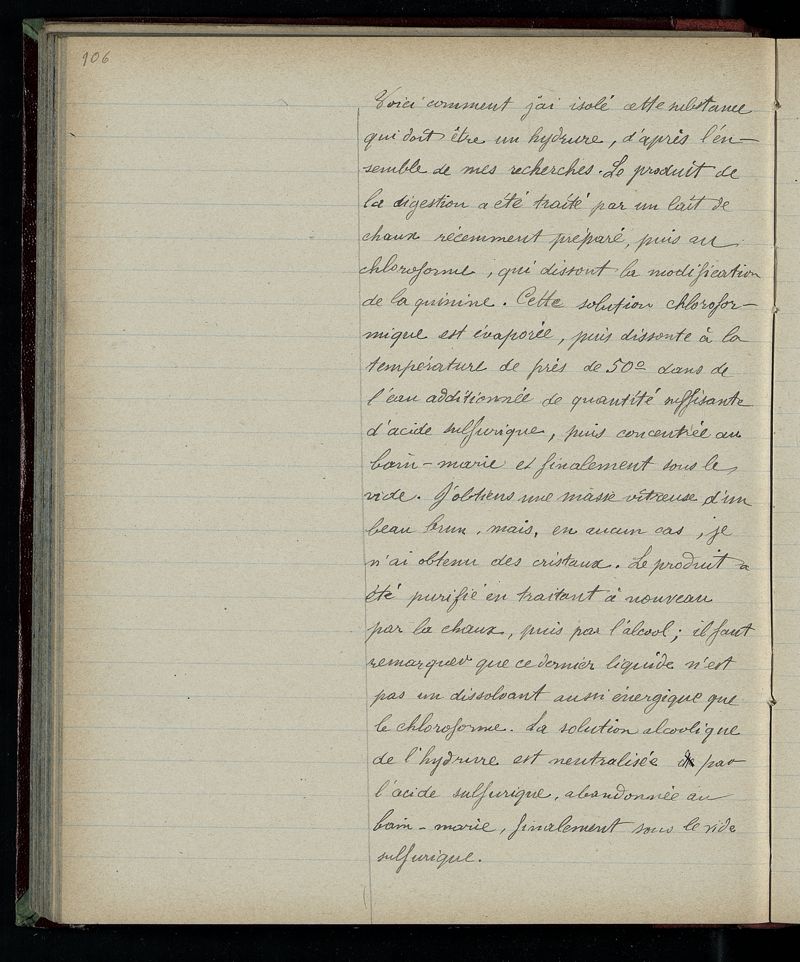 106
Voici comment j'ai isolé cette substance
qui doit être un hydrure, d'après l'en-
semble de mes recherches. Le produit de
la digestion a été traité par un lait de
chaux récemment préparé, puis au
chloroforme, qui dissout la modification
de la quinine. Cette solution chlorofor-
mique est évaporée, puis dissoute à la
température de près de 50° dans de
l'eau additionnée de quantité suffisante
d'acide sulfurique, puis concentrée au
bain-marie et finalement sous le
vide. J'obtiens une masse vitreuse d'un
beau brun, mais, en aucun cas, je
n'ai obtenu des cristaux. Le produit a
été purifié en traitant à nouveau
par la chaux, puis par l'alcool; il faut
remarquer que ce dernier liquide n'est
pas un dissolvant aussi énergique que
le chloroforme. La solution alcoolique
de l'hydrure est neutralisée par
l'acide sulfurique, abandonnée au
bain-marie, finalement sous le vide
sulfurique.